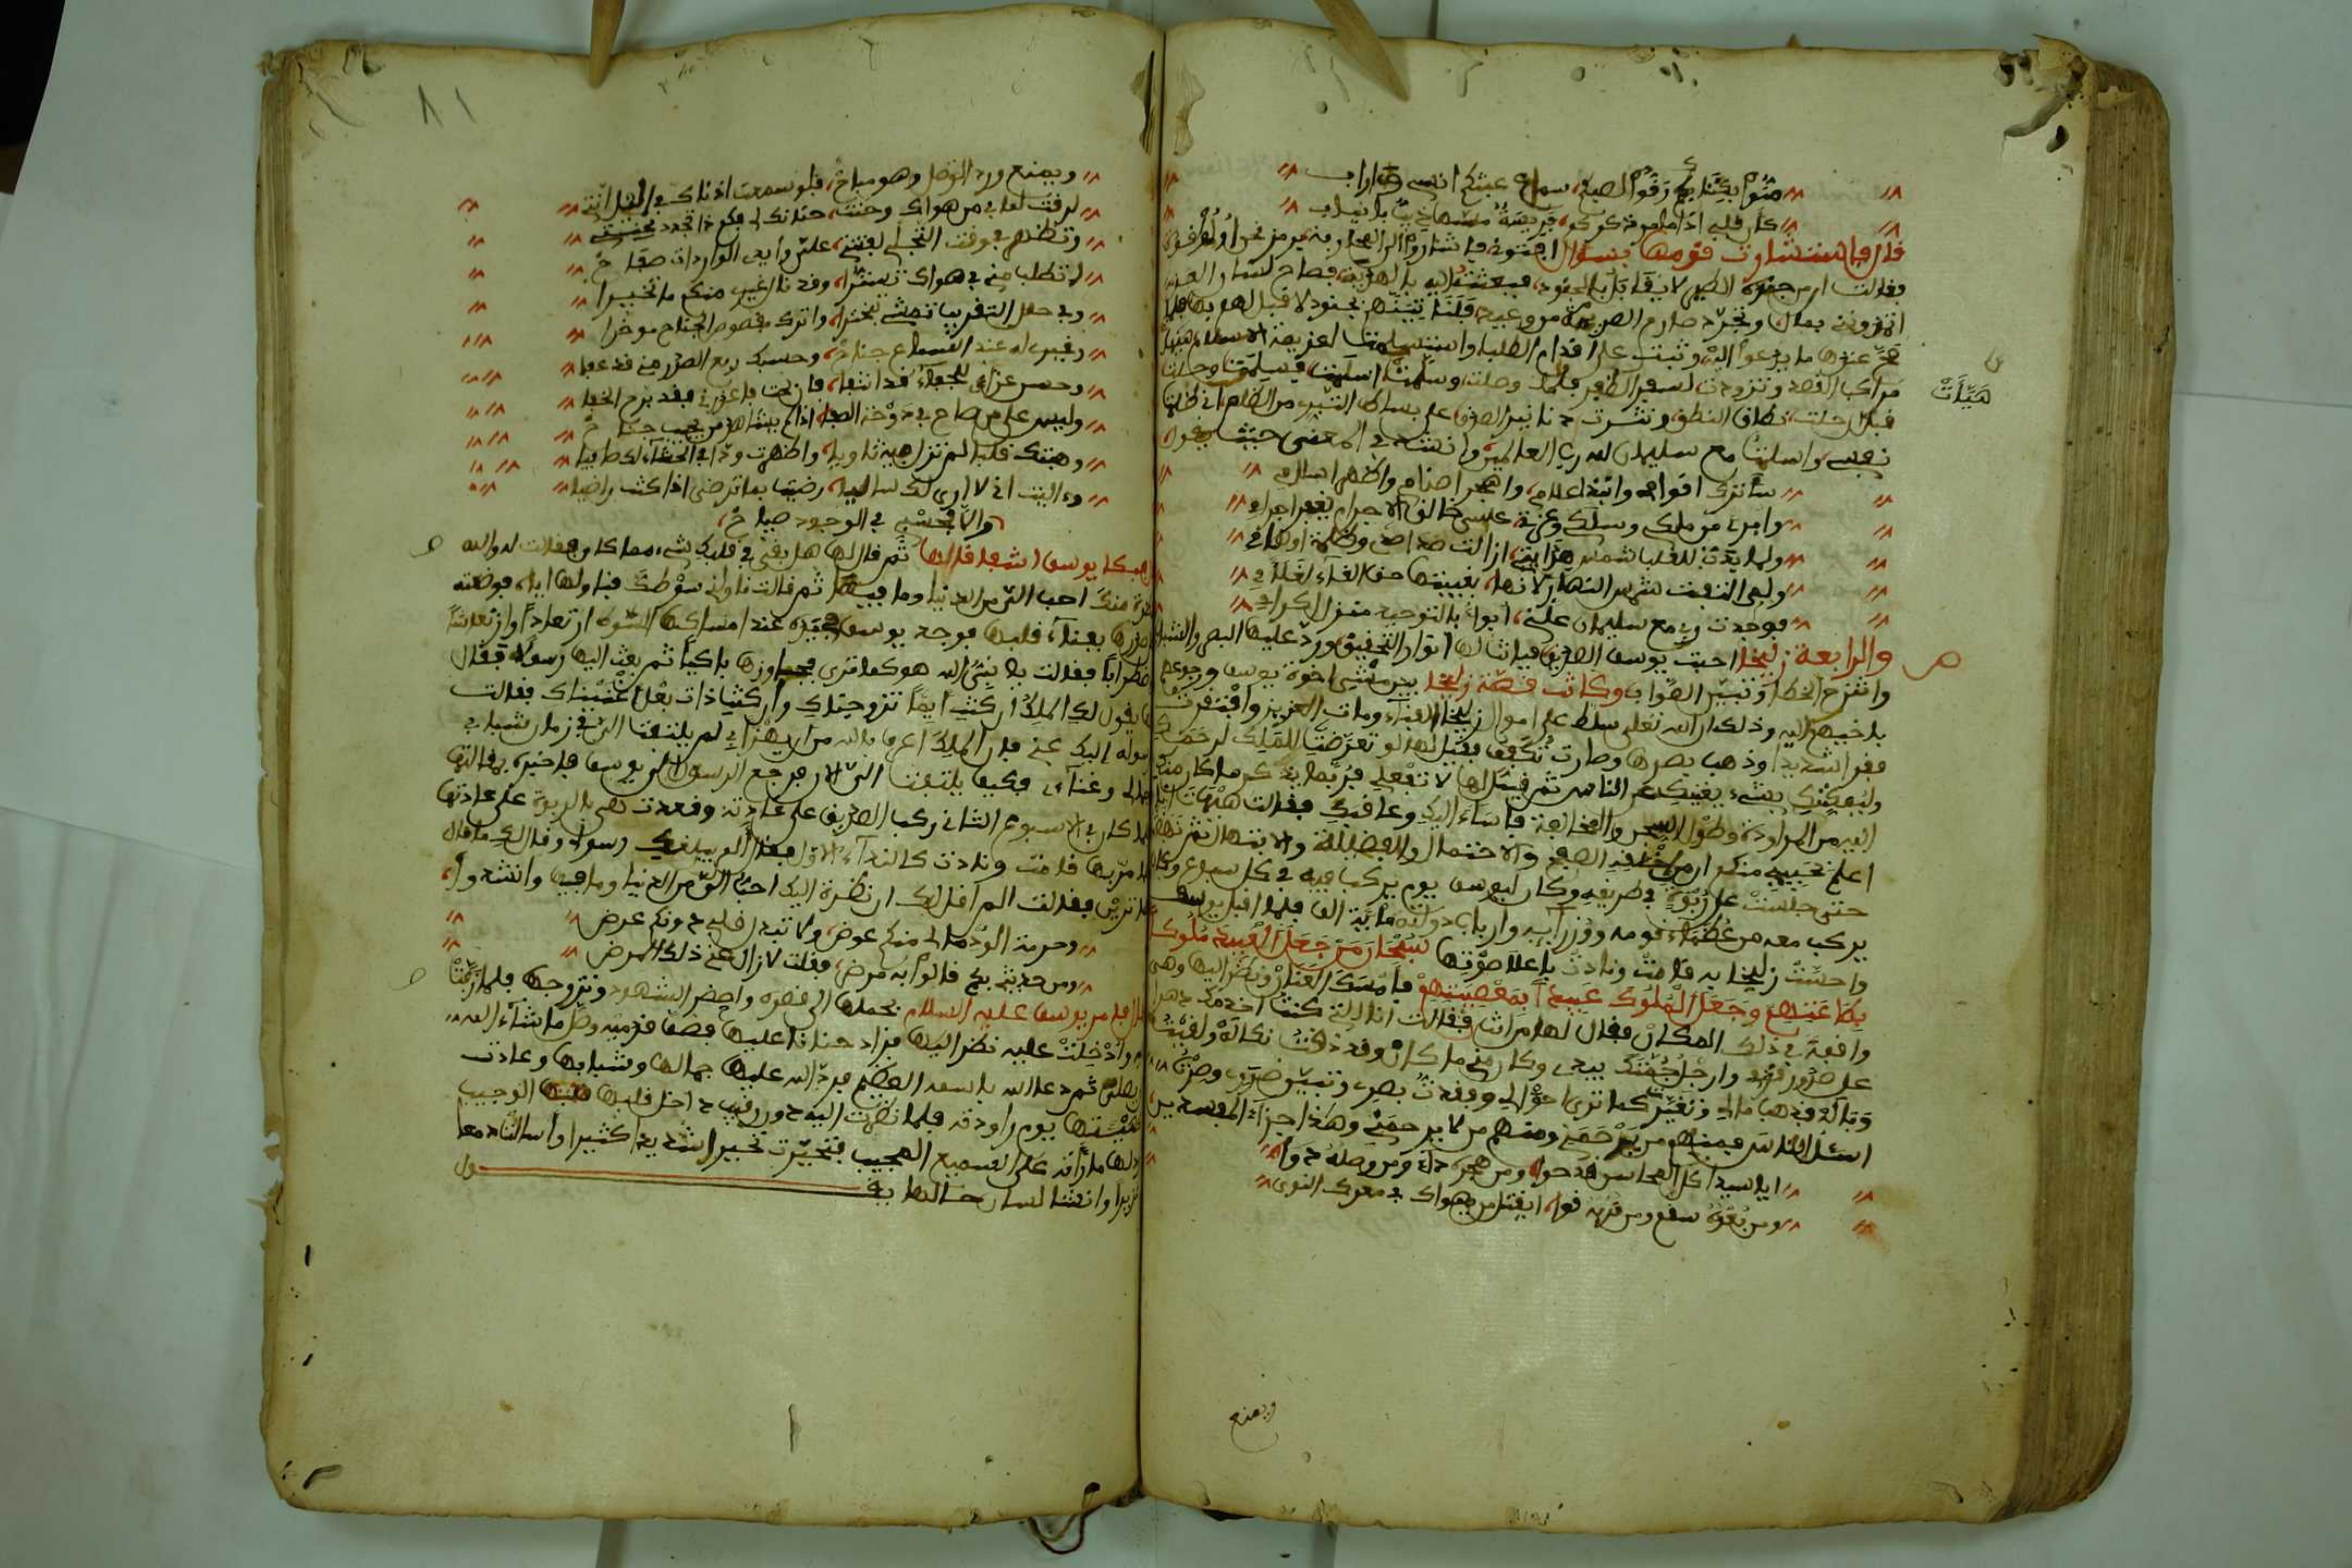 منوا بكتابكم رفوا لصبكم، سماع عبتكم انسى
كان قلبي اذا ما مر ذكركم، فريسة
قال فاستشارت قومها بسؤال افتوني فاشاروا الى المحاربة برمز نحن أولو قوة
فقالت ان من جنوده الطير لا يقابل بالجنود، فبعثت اليه بالهدية، فصاح لسان العز
اتمدونن بمال وتجرد صارم الصريمة من وعيد، فلنأتينهم بجنود لا قبل لهم بها فلما
صح عندها ما يدعوا اليه وثبت على اقدام الطلب واستسلمت لعزيمة الاسلام هيلت
هَيَّأَتْ
مراكب القصد وتزودت لسفر الظفر فلما وصلت، وسلمت اسلمت، فسلمت وحلت
قبل رحلت، نطاق النطق ونثرت دنانير الصدق على بساط التبر من الظلم اني ظلمت
نفسي واسلمت مع سليمان لله رب العالمين وانشد في المعنى حيث يقول
سأترك اقوامي وانبذ اعلامي، واهجر اصنامي واظهر اسلامي
وابرأ من ملكي وسلكي وعزتي، عسى خالق الاجرام يغفر اجرامي
ولما بدت للقلب شمس هدايتي، ازالت
ولم التفت شمس النهار لانها، تغيبها
فوجدت ربي مع سليمان علني، ابوأ بالتوحيد منزل اكرامي
والرابعة زليخا احبت يوسف الصديق فبانت لها انوار التحقيق ورد عليها البصر والشباب
وانتزح الخطا وتبين الصواب وكانت قصة زليخا بعد مشي اخوة يوسف ورجوعهم
باخيهم اليه وذلك ان الله تعلى سلط على اموال زليخا الفناء ومات العزيز وافتقرت
فقرا شديدا وذهب بصرها وصارت تكفف فقيل لها لو تعرضت للملك لرحمك
ولنفعك بشيء يغنيك عن الناس ثم قيل لها لا تفعلي فربما يذكر ما كان منك
اليه من المراودة وطول السجن والمخالفة فاساء اليك وعاقبك فقالت هيهات انا
اعلم بحبيبي منكم ان من خلقه الصفح والاحتمال
حتى جلست على ربوة في طريقه وكان ليوسف يوم يركب فيه في كل اسبوع وكان
يركب معه من عظماء قومه ووزرائه وارباب دولته مائة الف فلما اقبل يوسف
واحست زليخا به قامت ونادت باعلا صوتها سبحان من جعل العبيد ملوكا
بطاعتهم وجعل الملوك عبيدا بمعصيتهم فامسك العنان ونظر اليها وهي
واقفة في ذلك المكان فقال لها من انت فقالت انا التي كنت اخدمك دهرا
على صدور قدمي وارجل جمتك بيدي وكان مني ما كان وقد ذقت نكاله ولقيت
وباله فذهب مالي وتغير كما ترى احوالي وفقدت بصري وتبين ضري وصرت
اسئل الناس فمنهم من يرحمني ومنهم من لا يرحمني وهذا جزاء المفسدين
ايا سيدا كل المحاسن قد حوا، ومن هجره داء ومن وصله دوا
ومن بعده سقم ومن قربه قوا، ايقتل من يهواك في معرك النوى
ويمنع
٨١
ويمنع ورد الوصل وهو مباح، فلو سمعت اذناك في الليل انتي
لرقت لما بي من هواك وحنت،
وتظلم في وقت التجلي لفتتي، على وايدي الواردات صفاح
لا تطلب مني في هواك تسترا، وقد نال غيري منكم ما تخيرا
وفي حفل التقريب تمشي تبخترا، واترك مقصوص الجناح موخرا
وغيري له عند السماع جناح، وحسبك ربع الصبر مني قد عفا
وحسن عزائي للجفاء قد انتفا، فان بحت فاعذرني فقد برح الخفا
وليس على من صاح في دوخة الصفا، اذا لم يشاهد من يحب جناح
وهتك قلبا لم تزل فيه ثاويا، واظهرت ودا في الحشا لك طاويا
وءاليت اني لا ارى لك ساليا، رضيت بما ترضى اذا كنت راضيا
والا فحسبي في الوجود صياح،
فبكا يوسف اشفاقا لها ثم قال لها هل بقي في قلبك شيء مما كان فقلت له والله
نظرة منك احب الي من الدنيا وما فيها ثم قالت ناولني سوطك فناولها اياه فوضعته
على صدرها بفناء قلبها فوجد يوسف في يده عند امساكها السوط ارتعادا وارتعاشا
واضطرابا فقالت يا نبي الله هو كما ترى فجاوزها باكيا ثم بعث اليها رسولا فقال
لها يقول لك الملك ان كنت ايما تزوجناك وان كنت ذات بعل اغنيناك فقالت
لرسوله اليك عني فان الملك اعرف بالله من ان يهزأ بي لم يلتفت الي في زمان شبابي
وجمالي وغنائي فكيف يلتفت الي الان فرجع الرسول الى يوسف فاخبره بمقالتها
فلما كان في الاسبوع الثاني ركب الصديق على عادته وقعدت هي بالربوة على عادتها
فلما مر بها قامت ونادت كالنداء الاول فقال الم يبلغك رسولي وقال لك ما قال
فما ترين فقالت الم اقل لك ان نظرة اليك احب الي من الدنيا وما فيها وانشدوا
وحرمة الود ما لي منكم عوض، ولا تبدل قلبي دونكم عرض
ومن حديثي بكم قالوا به مرض، فقلت لا زال عني ذلك المرض
قال فامر يوسف عليه السلام بحملها الى قصره واحضر الشهود وتزوجها فلما زفت
اليه وادخلت عليه نظر اليها فزاد حنانا عليها فصف قدميه وصلى ما شاء الله
ان يصلي ثم دعا الله باسمه العظيم فرد الله عليها جمالها وشبابها وعادت
كهيئتها يوم راودته فلما نظرت اليه دون رقيب داخل قلبها الوجيب
ودلها ما رأته على السميع المجيب فتحيرت تحيرا شديدا كثيرا واسالت دمعا
غزيرا وانشا لسان حالها يقول